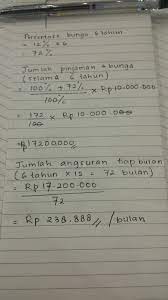 Persentase bunga 6 tahun
= 12% x 6
= 72%
Jumlah pinjaman + bunga
(selama 6 tahun)
= 100% + 72% / 100% x Rp 10.000.000
= 172 / 100 x Rp 10.000.000
= Rp 17.200.000
Jumlah angsuran tiap bulan
(6 tahun x 12 = 72 bulan)
= Rp 17.200.000 / 72
= Rp 238.888 // /bulan